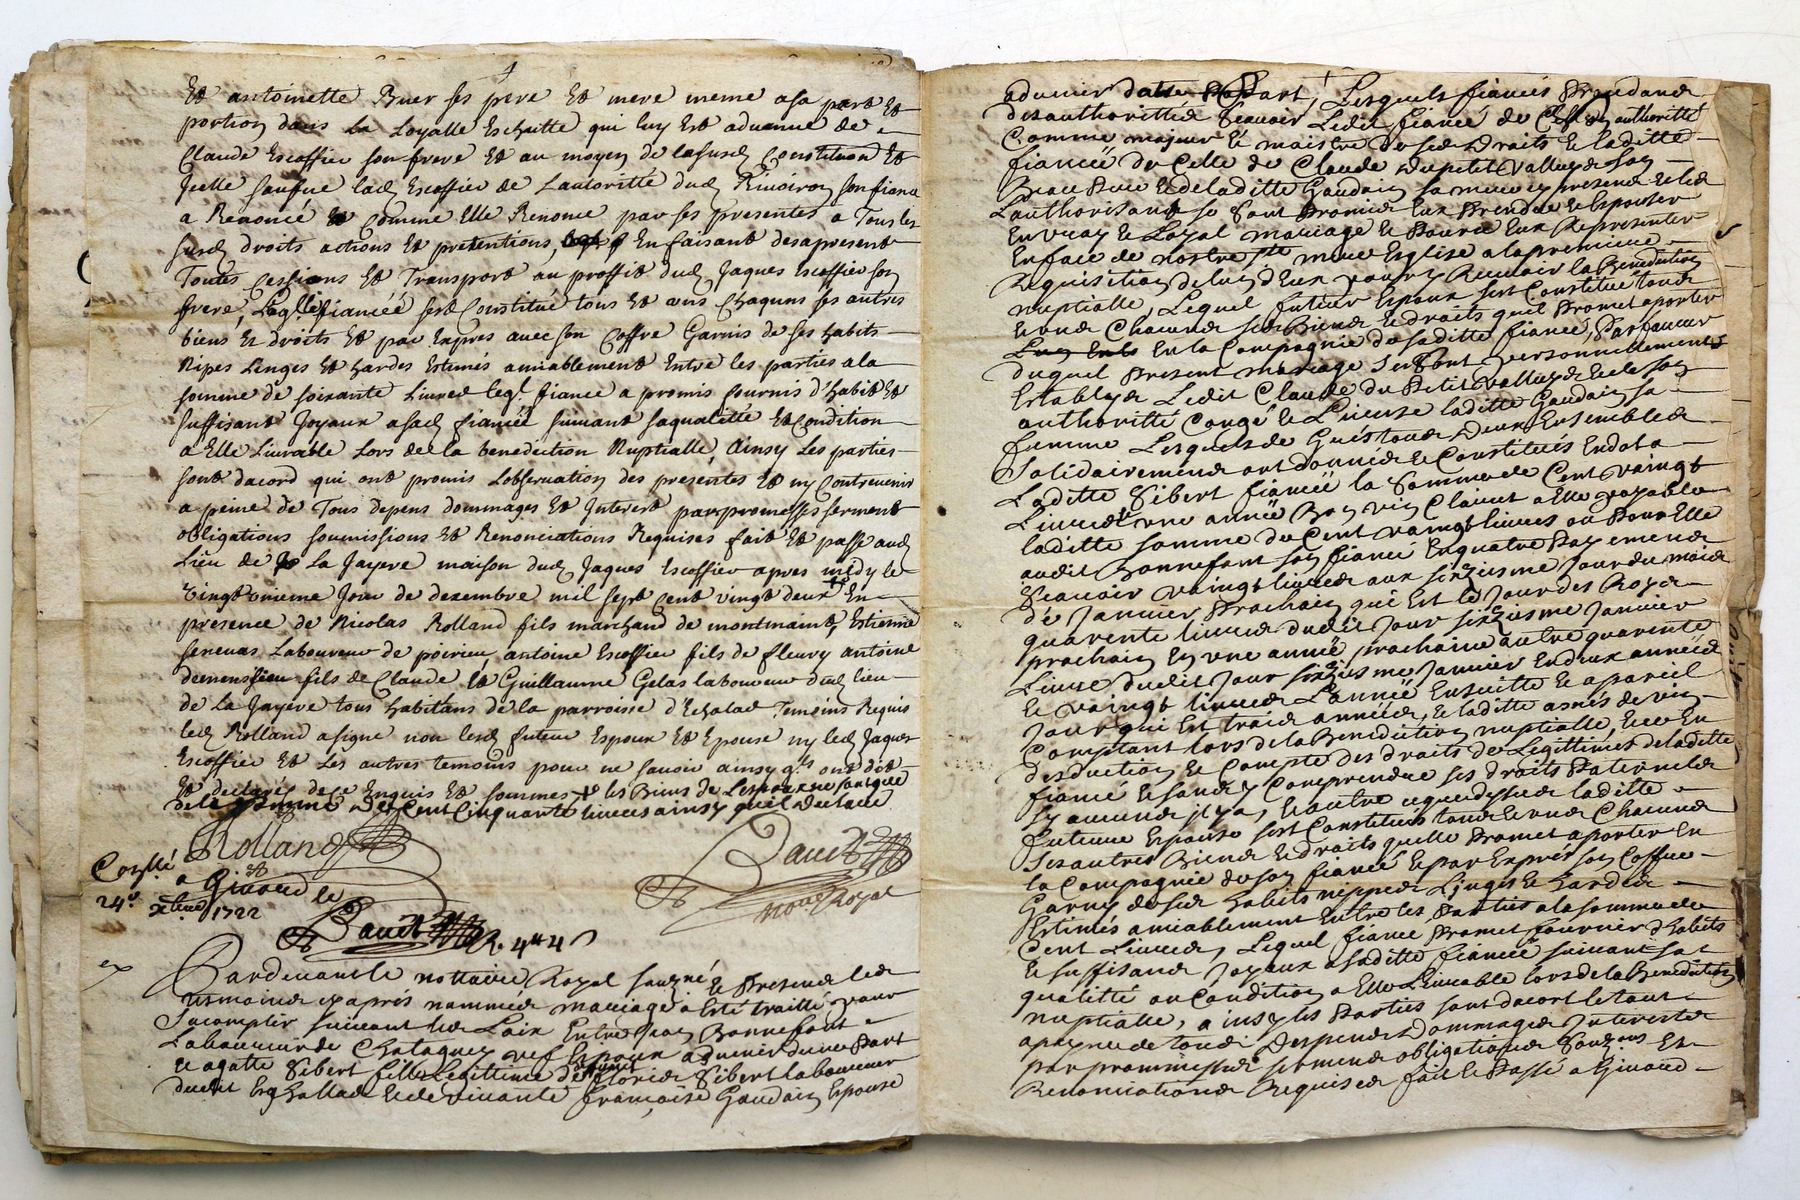 Et antoinette Buer ses pere Et mere meme a sa part Et
portion dans la Loyalle Escheutte qui luy Est aduenue de
Claude Escoffier son frere Et au moyen de lasusd Constitution Et
Jcelle saufue lad Escoffier de Lautoritté dud Riuoiron son fiance
a Renoncé Et comme Elle Renonce par ses presentes a Tous les
susd droits actions Et pretentions, En faisant des apresent
Toutes Cessions Et Transport au proffit dud Jaques Escoffier son
frere, Laqlle fiancéé sest Constitué tous Et uns Chaquns ses autres
biens Et droits Et par Expres auec son Coffre Garnis de ses habits
Nipes Linges Et hardes Estimés amiablement Entre les parties a la
somme de soixante Liures leql fiance a promis fournir d'habit Et
suffisant Joyaux a sad fiancéé suiuant sa qualitté Et Condition
a Elle Liurable Lors de la benediction Nuptialle, Ainsy Les parties
sont dacord qui ont promis Lobseruation des presentes Et ny Contreuenir
a peine de Tous depens dommages Et Interest par promesses serment
obligations soumissions Et Renonciations Requises fait Et passé aud
Lieu de La Jayere maison dud Jaques Escoffier apres midy le
vingt unieme Jour de dexembre mil sept cent vingt deux En
presence de Nicolas Rolland fils marchand de montmaint, Estienne
seruas Laboureur de poirieu, antoine Escoffier fils de fleury antoine
fils de Claude Et Guillaume Gelas laboureur dud lieu
de La Jayere tous habitans de la parroisse d'Echalas Temoins Requis
led Rolland a signé non lesd futeur Espoux Et Epouse ny led Jaques
Escoffier Et Les autres temoins pour ne sauoir ainsy qls ont dit
Et declarés de ce Enquis Et sommes les Biens de Lespoux
de la somme de Cent Cinquante liures ainsy quil declare
Rolland
Dauet
nore Royal
Conllé
a Giuord le
24e xbre 1722
Dauet R. 4tt 4s
ex
Pardeuant le nottaire Royal sousné Et Present les
Tesmoins cy aprés nommés mariage a Esté traitté pour
Sacomplir suiuant les Loix Entre Jean Bonnefont
Laboureur de Chatagney vef Espoux aduenir dune Part
Et agatte Sibert fille Legittime de Sibert laboureur
dudit Echallas Et de viuante françoise Gaudain Espouse
aduenir dautre Part, Lesquels fiancés Procedans
desauthorittés Scauoir Ledit fiancé de Celle authoritté
Comme majeur Et maistre de ses Droits Et laditte
fiancéé de Celle de Claude du petit Valluy de son
Beau Pere Et de laditte Gaudain sa mere cy presens Et les
Lauthorisant se sont Promis Eux Prendre Et Espouser
En vray Et Loyal mariage Et Pource Eux Representer
En face de nostre ste mere Eglise a la premiere
Requisition de lun deux pour y Receuoir la Benediction
nuptialle, Lequel futeur Espoux sest Constitué tous
Et uns Chacuns ses Biens Et droits quil Promet aporter
En la Compagnie de saditte fiancée, Par faueur
duquel Present mariage se sont personnellement
Establys Ledit Claude du Petit valluy Et de son
authoritté Congé Et Licence laditte Gaudain sa
femme Lesquels de Gré tous deux Ensembles
Solidairement ont donnés Et Constitués En dot a
Laditte Sibert fiancéé la somme de Cent vaingt
Liures Et vne année Bon vin Clairet a Elle payable
laditte somme de Cent vaingt liures ou Pour Elle
audit Bonnefont son fiancé En quatre Payemens
Scauoir vaingt liures aux sixiesme Jour du mois
de Januier Prochain qui Est le Jour des Roys
quarente liures dudit Jour sixiesme Januier
prochain En vne année prochaine autre quarente
Liures dudit Jour sixiesme Januier En deux années
Et vaingt liures Lannée Ensuitte Et apareil
Jour qui Est trois années, Et laditte asnés de vin
Comptant lors de la Benediction nuptialle, Et ce En
desduction Et Compte des droits de Legittimes de laditte
fiancé Et sans y Comprendre ses droits Paternels
sy aucuns jl y a, Et autre laditte
future Espouse sest Constitués tous Et uns Chacuns
ses autres Biens Et droits quelle Promet aporter En
la Compagnie de son fiancé Et par Exprés son Coffre
Garny de ses habits nippes Linges Et hardes
Estimés amiablement Entre les Parties a la somme de
Cent Liures, Lequel fiancé Promet fournir d'habits
Et suffisans Joyaux a saditte fiancéé suiuant sa
qualitté ou Condition a Elle Liurable lors de la Benediction
nuptialle, ainsy les Parties sont dacort le tout
apeyne de tous Despens Dommages Interests
par prommesses serment obligations sousons Et
Renonciations Requises fait Et Passé a Giuord